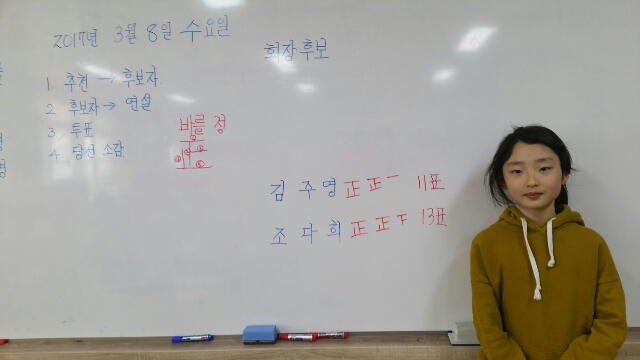 2017년 3월 8일 수요일
회장 후보
1. 추천 → 후보자
2. 후보자 → 연설
3. 투표
4. 당선 소감
바를 정
正
김 주 영 正 正 一 11표
조 다 희 正 正 下 13표